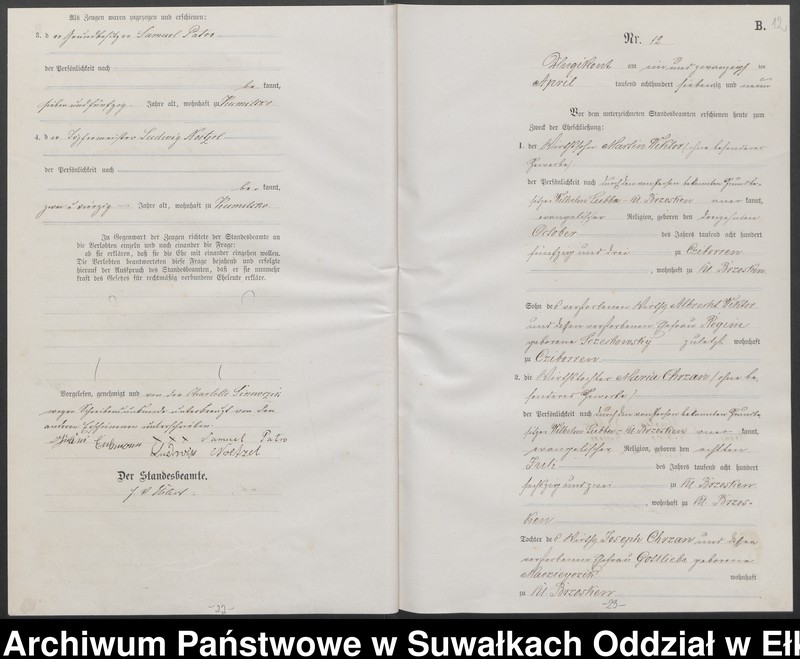 Als Zeugen waren zugezogen und erschienen:
3. der Grundbesitzer Samuel Patro
der Persönlichkeit nach
be kannt,
sieben und fünfzig Jahre alt, wohnhaft zu Kumilsko
4. der Töpfermeister Ludwig Noetzel
der Persönlichkeit nach
be kannt,
zwei u vierzig Jahre alt, wohnhaft zu Kumilsko
In Gegenwart der Zeugen richtete der Standesbeamte an
die Verlobten einzeln und nach einander die Frage:
ob sie erklären, daß sie die Ehe mit einander eingehen wollen.
Die Verlobten beantworteten diese Frage bejahend und erfolgte
hierauf der Ausspruch des Standesbeamten, daß er sie nunmehr
kraft des Gesetzes für rechtmäßig verbundene Eheleute erkläre.
Vorgelesen, genehmigt und von der Charlotte
wegen Schreibensunkunde unterkreuzt von den
anderen Erschienenen unterschrieben.
XXX Samuel Patro
Ludwig Noetzel
Der Standesbeamte.
-22-
B. 12
Nr. 12
am ein und zwanzigsten
April tausend achthundert siebenzig und neun
Vor dem unterzeichneten Standesbeamten erschienen heute zum
Zweck der Eheschließung:
1. der Wirthssohn Martin Viktor (ohne besonderes
Gewerbe)
der Persönlichkeit nach durch den von Person bekannten Grundbe-
sitzer Wilhelm Kl. Brzosken aner kannt,
evangelischer Religion, geboren den dreizehnten
October des Jahres tausend acht hundert
fünfzig und drei zu Cziborren
, wohnhaft zu Kl. Brzosken
Sohn des verstorbenen Wirths Albrecht Viktor
und dessen verstorbenen Ehefrau Regine
geborene zuletzt wohnhaft
zu Cziborren
2. die Wirthstochter Maria Chrzan (ohne be-
sonderes Gewerbe)
der Persönlichkeit nach durch den von Person bekannten Grundbe-
sitzer Wilhelm Kl. Brzosken aner kannt,
evangelischer Religion, geboren den achten
Juli des Jahres tausend acht hundert
sechzig und zwei zu Kl. Brzosken
, wohnhaft zu Kl. Brzos-
ken
Tochter des Wirths Joseph Chrzan und dessen
verstorbenen Ehefrau Gottliebe geborene
wohnhaft
zu Kl. Brzosken
-23-
Archiwum Państwowe w Suwałkach Oddział w Ełk